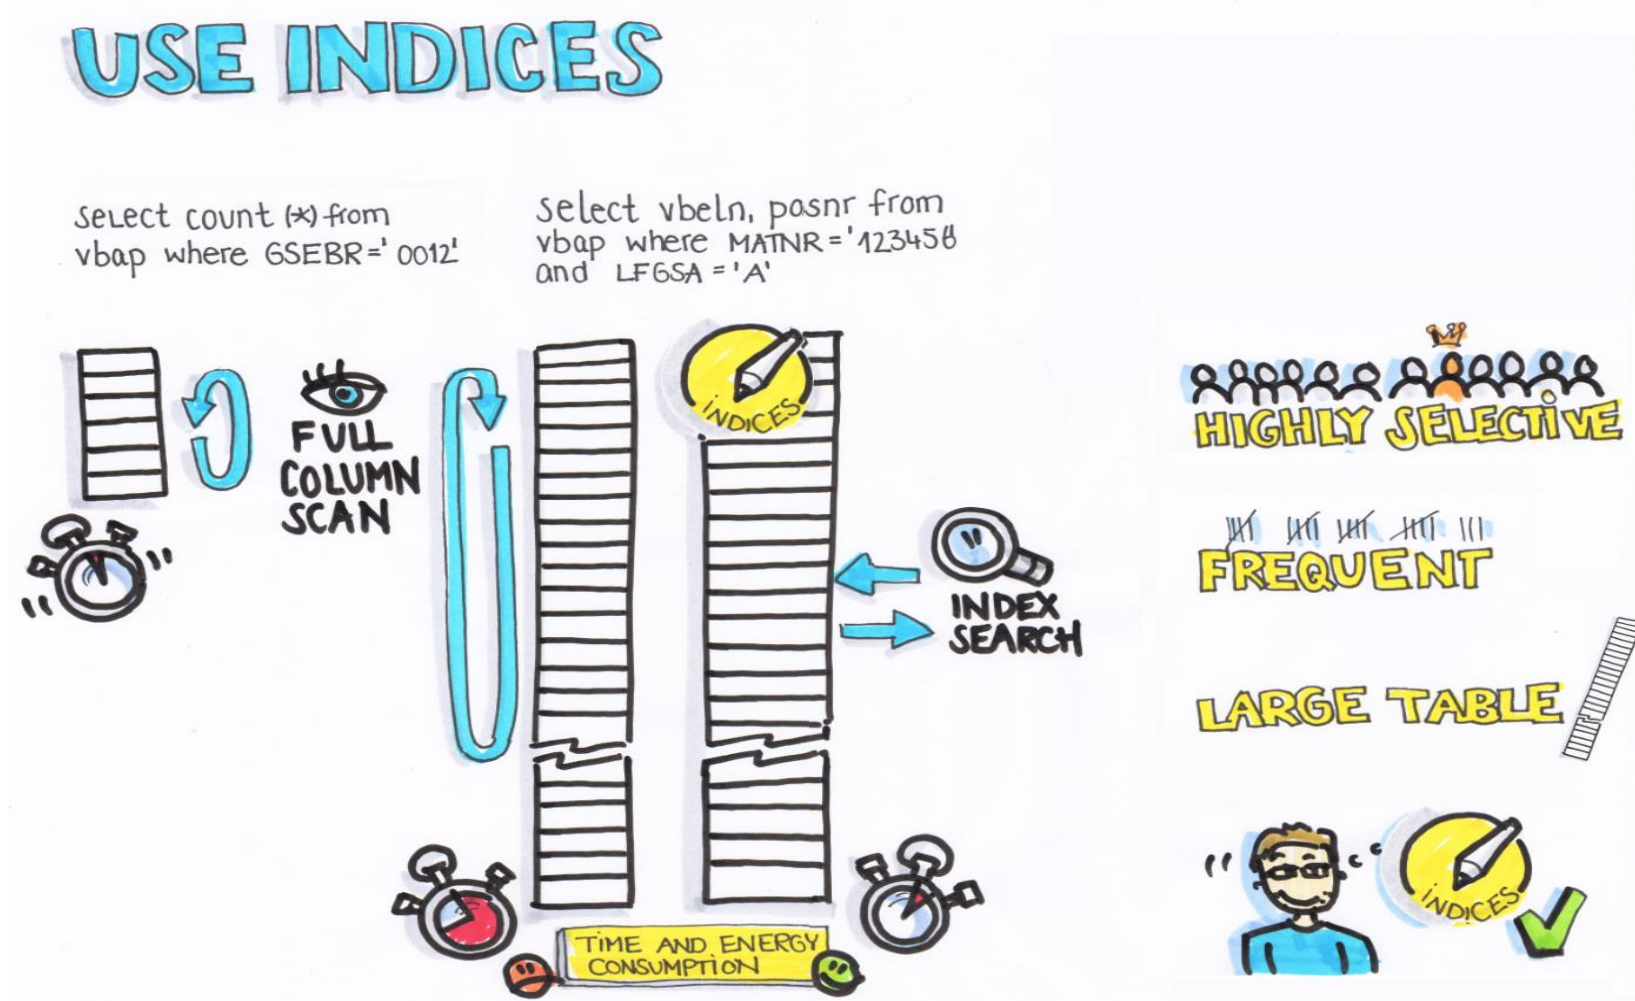 USE INDICES
SeLect count (*) from
vbap where GSEBR='0012'
select vbeln, posnr from
vbap where MATNR='123456'
and LFGSA = 'A'
INDICES
FULL
COLUMN
SCAN
INDEX
SEARCH
TIME AND ENERGY
CONSUMPTION
HIGHLY SELECTIVE
FREQUENT
LARGE TABLE
INDICES